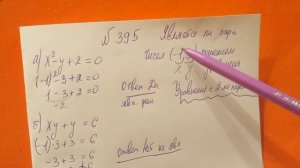 № 395 Является ли пара
чисел (-1;3) решением
x y уравнения
а) x² - y + 2 = 0
(-1)² - 3 + 2 = 0
1 - 3 + 2 = 0
-2
Ответ Да
явл. реш
Уравнение с 2-мя пер
б) xy + y = 6
-1·3 + 3 = 6
-3 + 3 = 6
Ответ не явл